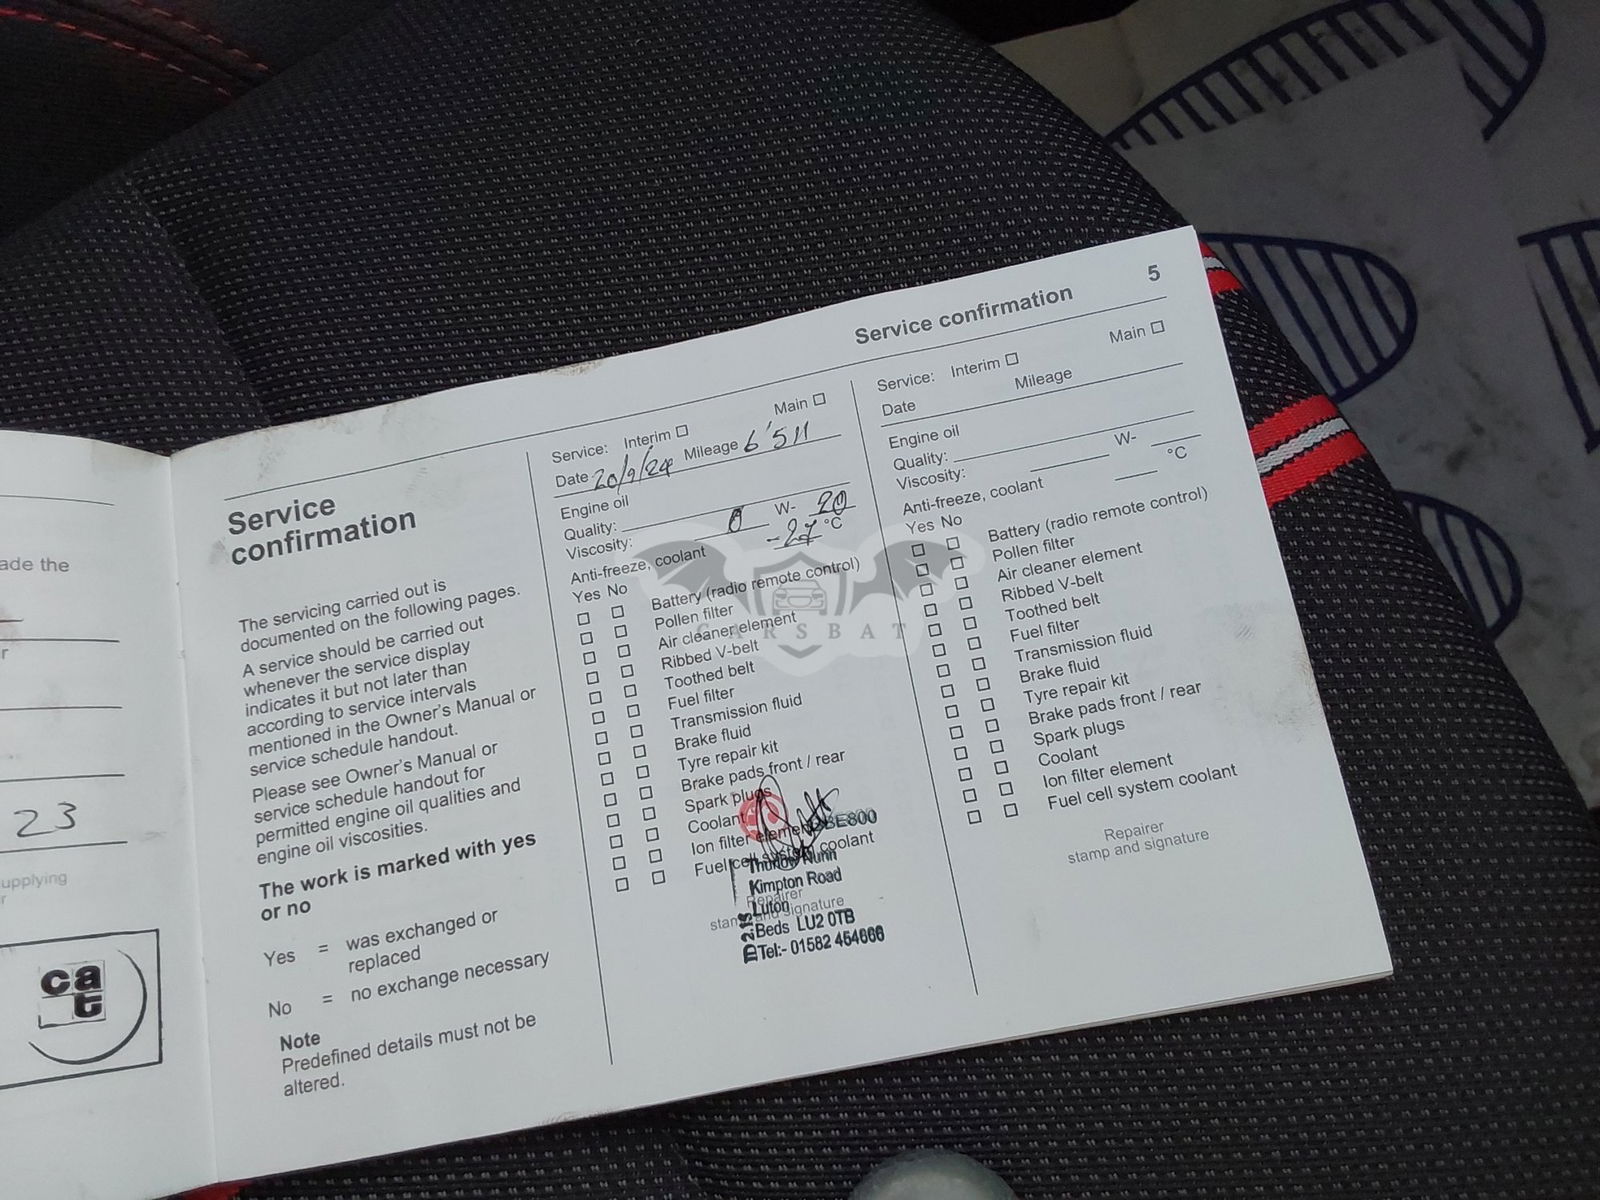 ade the
r
23
upplying
r
ca
t
Service
confirmation
The servicing carried out is
documented on the following pages.
A service should be carried out
whenever the service display
indicates it but not later than
according to service intervals
mentioned in the Owner's Manual or
service schedule handout.
Please see Owner's Manual or
service schedule handout for
permitted engine oil qualities and
engine oil viscosities.
The work is marked with yes
or no
Yes = was exchanged or
replaced
No = no exchange necessary
Note
Predefined details must not be
altered.
Service confirmation 5
Service: Interim □ Main □
Date 20/9/24 Mileage 6'511
Engine oil
Quality:
Viscosity: 0 W- 20
Anti-freeze, coolant -27 °C
Yes No
□ □ Battery (radio remote control)
□ □ Pollen filter
□ □ Air cleaner element
□ □ Ribbed V-belt
□ □ Toothed belt
□ □ Fuel filter
□ □ Transmission fluid
□ □ Brake fluid
□ □ Tyre repair kit
□ □ Brake pads front / rear
□ □ Spark plugs
□ □ Coolant
□ □ Ion filter element
□ □ Fuel cell system coolant
BE800
Thurlow Nunn
Kimpton Road
Luton
Beds LU2 0TB
Tel:- 01582 454666
Repairer
stamp and signature
CARSBAT
Service: Interim □ Main □
Date Mileage
Engine oil
Quality:
Viscosity: W-
Anti-freeze, coolant °C
Yes No
□ □ Battery (radio remote control)
□ □ Pollen filter
□ □ Air cleaner element
□ □ Ribbed V-belt
□ □ Toothed belt
□ □ Fuel filter
□ □ Transmission fluid
□ □ Brake fluid
□ □ Tyre repair kit
□ □ Brake pads front / rear
□ □ Spark plugs
□ □ Coolant
□ □ Ion filter element
□ □ Fuel cell system coolant
Repairer
stamp and signature